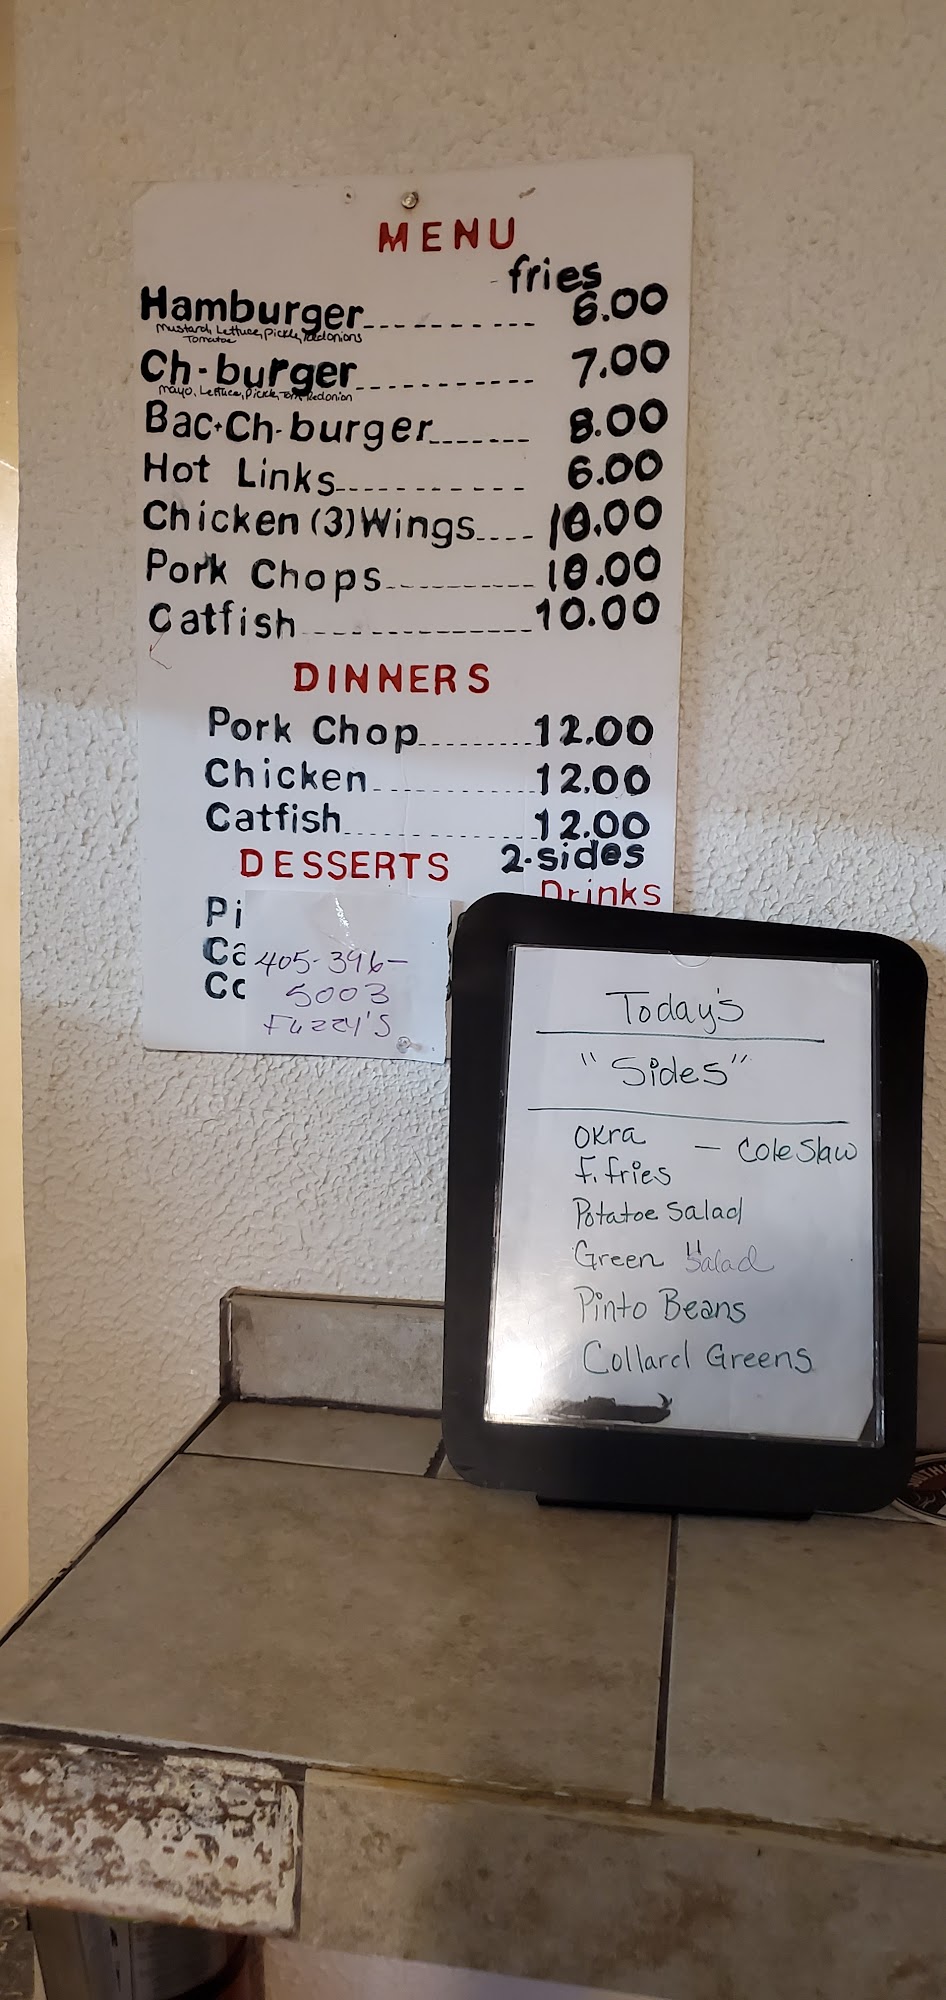 MENU
- fries
Hamburger---------- 6.00
Mustard, Lettuce, Pickle, Redonions
Tomatoe
Ch-burger----------- 7.00
mayo, Lettuce, Pickle, Tom, Redonion
Bac+Ch-burger------ 8.00
Hot Links------------ 6.00
Chicken (3) Wings---- 10.00
Pork Chops---------- 10.00
Catfish---------------10.00
DINNERS
Pork Chop...........12.00
Chicken..............12.00
Catfish...............12.00
DESSERTS 2-sides
Drinks
Pi
Ca
Co
405-396-
5003
Fuzzy'S
Today's
"Sides"
Okra - Cole Slaw
F. fries
Potatoe Salad
Green "Salad
Pinto Beans
Collard Greens